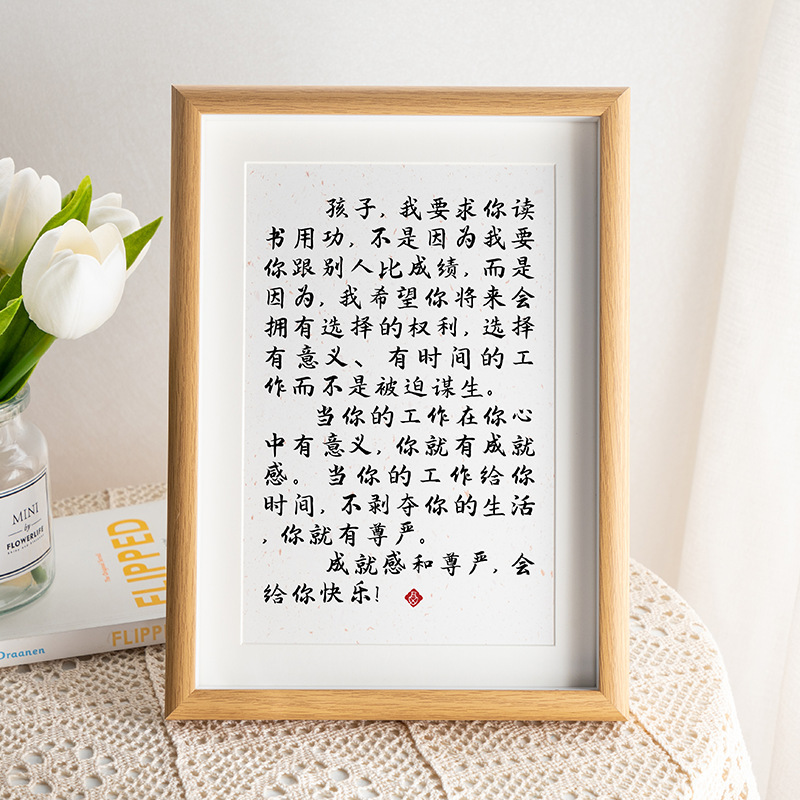 孩子，我要求你读
书用功，不是因为我要
你跟别人比成绩，而是
因为，我希望你将来会
拥有选择的权利，选择
有意义、有时间的工
作而不是被迫谋生。
当你的工作在你心
中有意义，你就有成就
感。当你的工作给你
时间，不剥夺你的生活
，你就有尊严。
成就感和尊严，会
给你快乐！
MINI
by
FLOWERLIFE
FLIPPED
FLIPP
Draanen